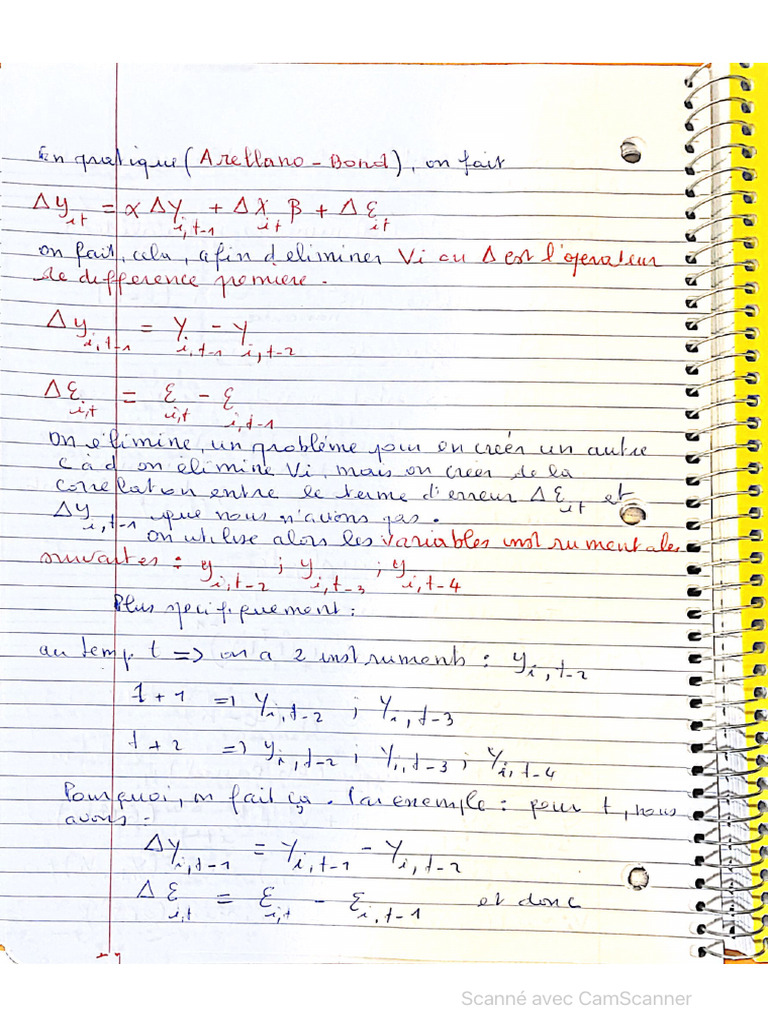 En pratique (Arellano-Bond), on fait
Δy_{it} = α Δy_{i,t-1} + ΔX_{it} β + Δε_{it}
on fait, cela, afin d'eliminer Vi ou Δ est l'operateur
de difference premiere.
Δy_{i,t-1} = y_{i,t-1} - y_{i,t-2}
Δε_{i,t} = ε_{i,t} - ε_{i,t-1}
On élimine, un problème pour en creér un autre
c à d on élimine Vi, mais on creer de la
correlation entre le terme d'erreur Δε_{it} et
Δy_{i,t-1} que nous n'avons pas.
on utilise alors les variables instrumentales
suivantes : y_{i,t-2} ; y_{i,t-3} ; y_{i,t-4}
Plus specifiquement :
au temp t => on a 2 instruments : y_{i,t-2}
t+1 => y_{i,t-2} ; y_{i,t-3}
t+2 => y_{i,t-2} ; y_{i,t-3} ; y_{i,t-4}
Pourquoi, on fait ça. Par exemple : pour t, nous
avons :
Δy_{i,t-1} = y_{i,t-1} - y_{i,t-2}
Δε_{i,t} = ε_{i,t} - ε_{i,t-1} et donc
Scanné avec CamScanner